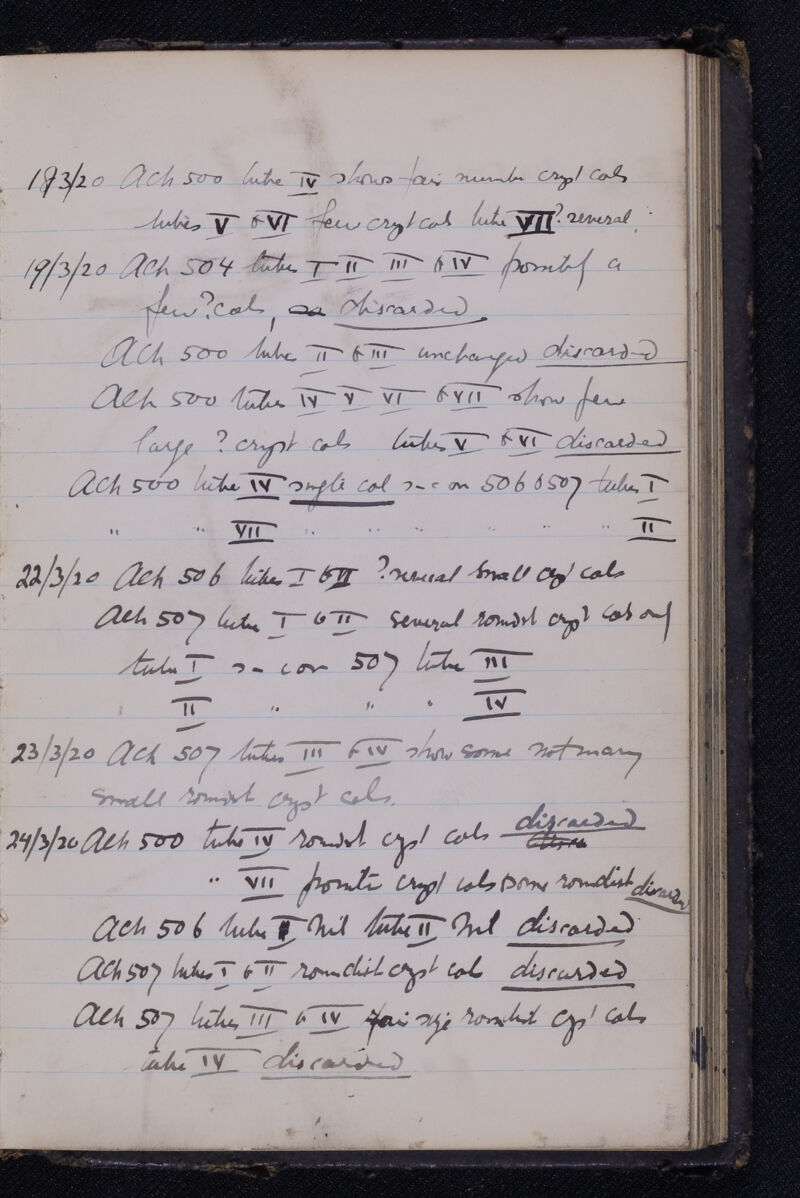 18/3/20 Ach 500 tube IV shows fair number cryst cols
tubes V & VI few cryst cols tube VII ? several
19/3/20 Ach 504 tubes I II III & IV possibly a
few ? cols, discarded
Ach 500 tube II & III unchanged discarded
Ach 500 tubes IV V VI & VII show few
large ? cryst cols tubes V & VI discarded
Ach 500 tube IV single col s-c on 506 & 507 tubes I
" " VII " " " " " " II
22/3/20 Ach 506 tubes I & II ? several small cryst cols
Ach 507 tube I & II several roundish cryst cols
tube I s-c on 507 tube III
II " " " IV
23/3/20 Ach 507 tubes III & IV show some not many
small roundish cryst cols.
24/3/20 Ach 500 tube IV roundish cryst cols discarded
" VII cryst cols some roundish discarded
Ach 506 tube I Nil tube II Nil discarded
Ach 507 tubes I & II roundish cryst cols discarded
Ach 507 tubes III & IV fair size roundish cryst cols
tube IV discarded